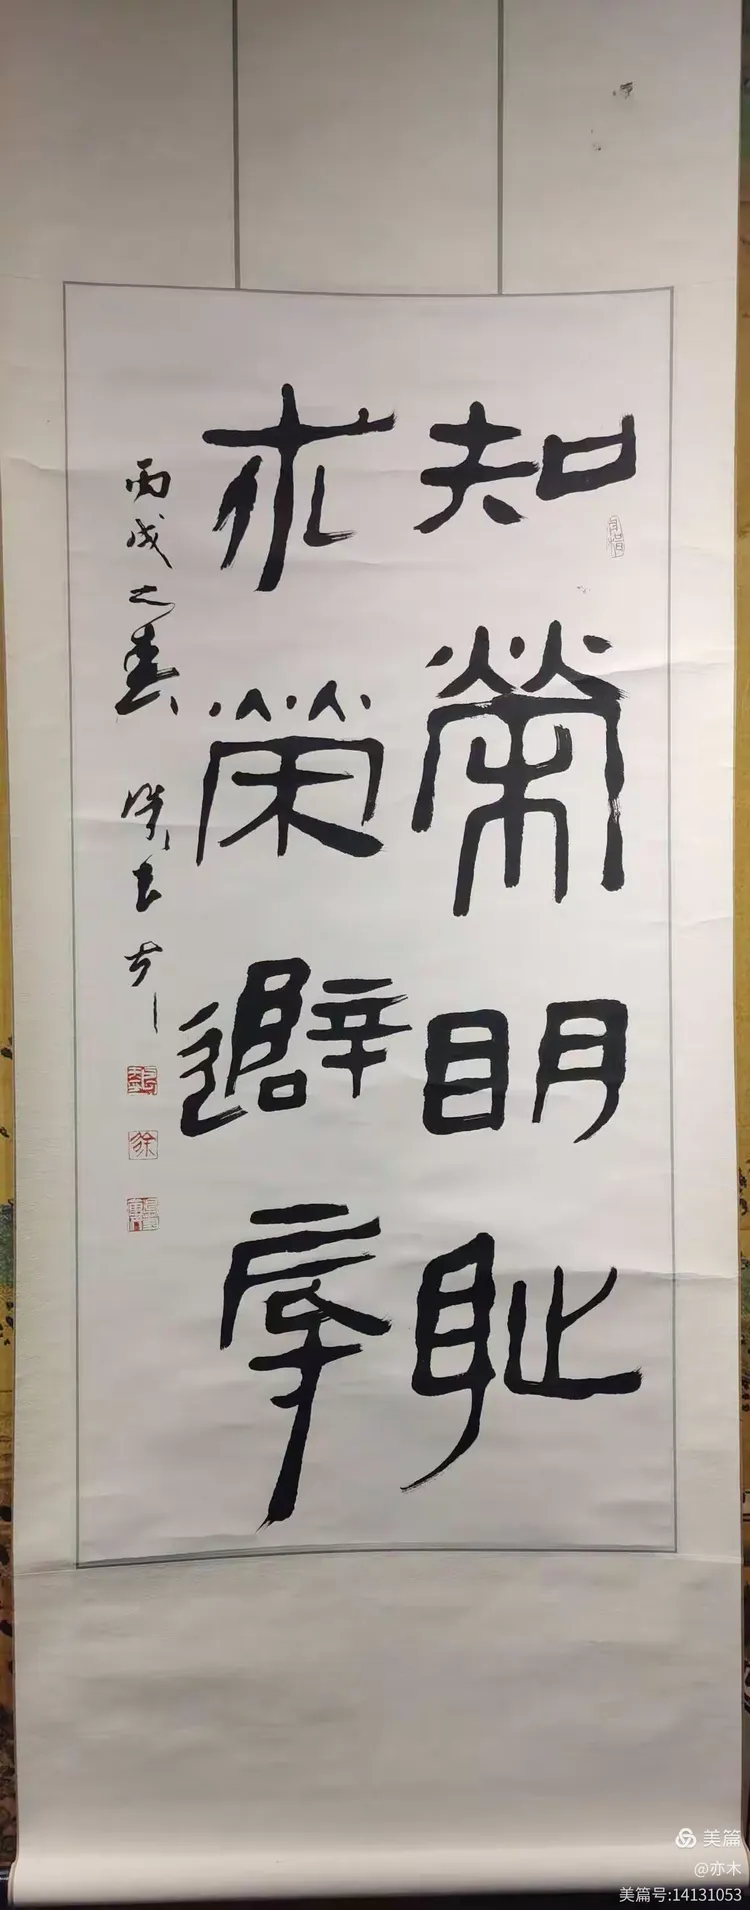 知榮明耻
求榮避辱
丙戌之春
徐
美篇
@亦木
美篇号:14131053